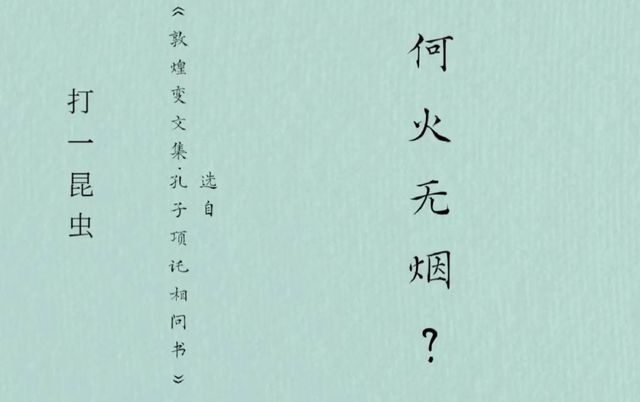 何火无烟？
选自
《敦煌变文集·孔子项讬相问书》
打一昆虫